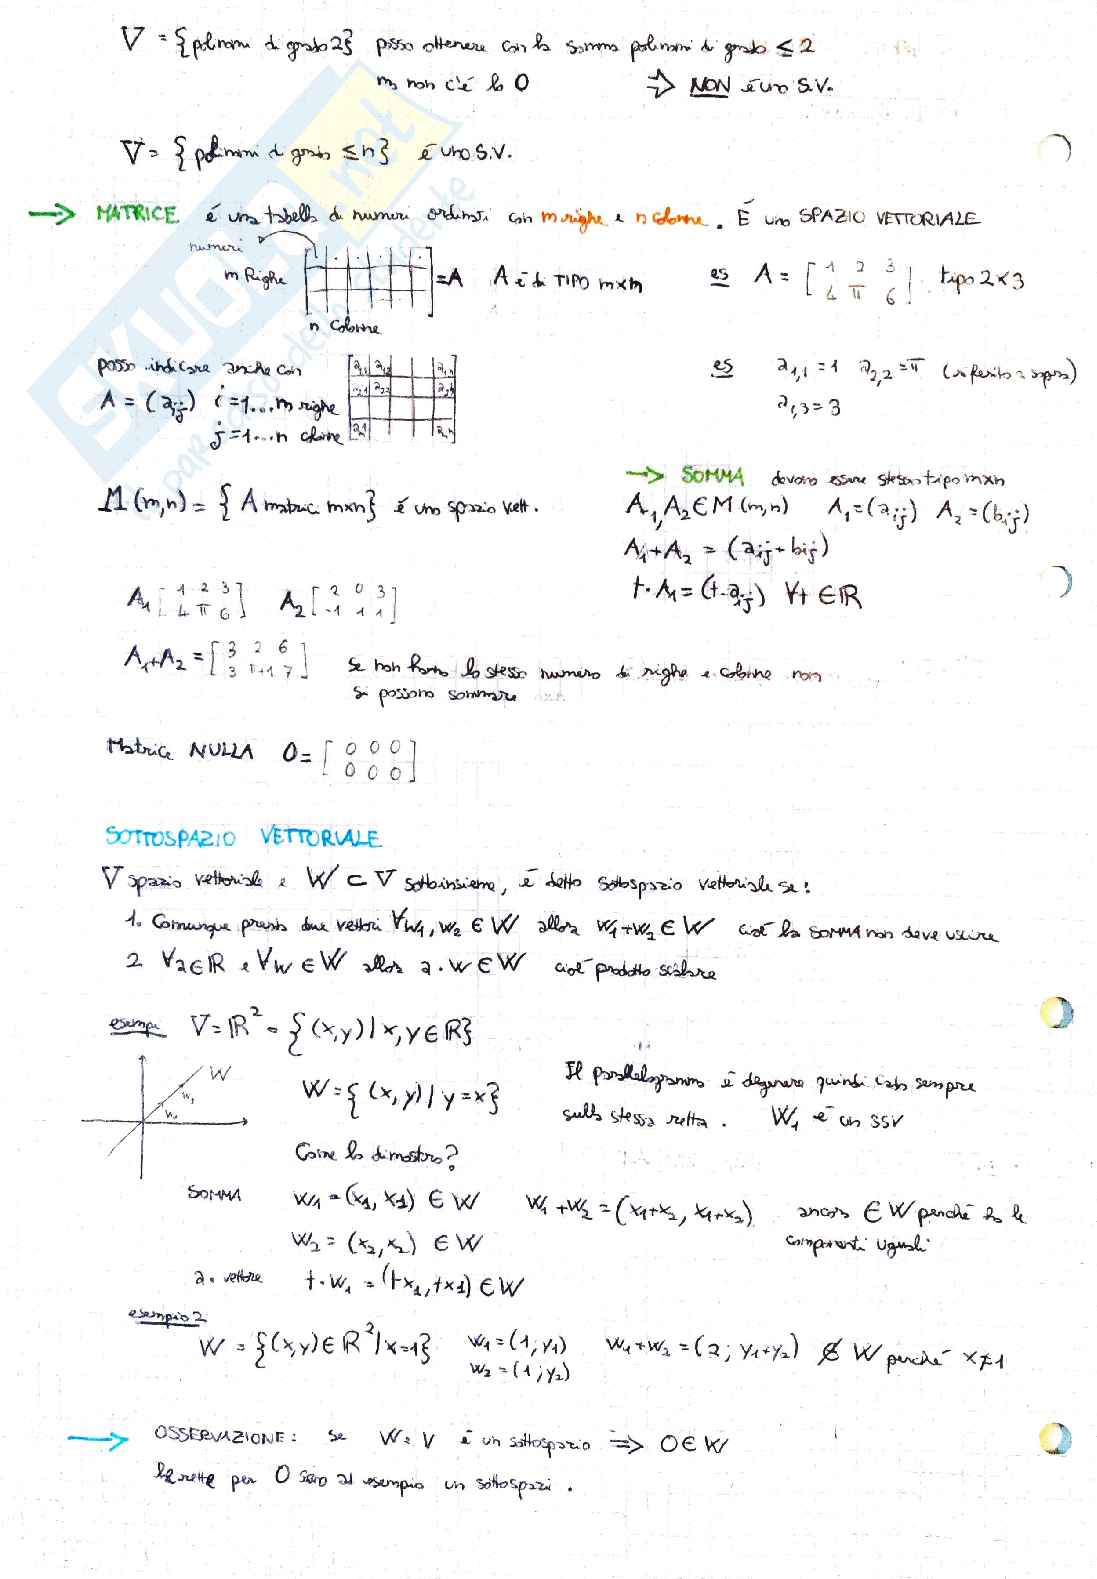 V = {polinomi di grado 2} posso ottenere con la somma polinomi di grado ≤ 2
ma non c'è lo 0 ⇒ NON è uno S.V.
V = {polinomi di grado ≤ n} è uno S.V.
→ MATRICE è una tabella di numeri ordinati con m righe e n colonne. È uno SPAZIO VETTORIALE
numeri
m Righe = A A è di TIPO m×n es A = [1 2 3 / 4 π 6] tipo 2×3
n colonne
posso indicare anche con es a1,1 = 1 a2,2 = π (riferito a sopra)
A = (aij) i = 1...m righe a1,3 = 3
j = 1...n colonne
→ SOMMA devono essere stesso tipo m×n
M(m,n) = {A matrici m×n} è uno spazio vett. A1, A2 ∈ M(m,n) A1 = (aij) A2 = (bij)
A1+A2 = (aij + bij)
t·A1 = (t·aij) ∀t ∈ ℝ
A1 [1 2 3 / 4 π 6] A2 [2 0 3 / -1 1 1]
A1+A2 = [3 2 6 / 3 π+1 7] se non hanno lo stesso numero di righe e colonne non
si possono sommare
Matrice NULLA 0 = [0 0 0 / 0 0 0]
SOTTOSPAZIO VETTORIALE
V spazio vettoriale e W ⊂ V sottoinsieme, è detto sottospazio vettoriale se:
1. Comunque presi due vettori ∀w1, w2 ∈ W allora w1+w2 ∈ W cioè la SOMMA non deve uscire
2 ∀a∈ℝ e ∀w ∈ W allora a·w ∈ W cioè prodotto scalare
esempi V = ℝ² = {(x,y) | x,y ∈ ℝ}
W
W = {(x,y) | y = x} Il parallelogramma è degenere quindi cado sempre
sulla stessa retta. W1 è un SSV
Come lo dimostro?
SOMMA w1 = (x1, x1) ∈ W w1+w2 = (x1+x2, x1+x2) ancora ∈ W perché ha le
w2 = (x2, x2) ∈ W componenti uguali
a· vettore t·w1 = (tx1, tx1) ∈ W
esempio 2
W = {(x,y) ∈ ℝ² | x=1} w1 = (1; y1) w1+w2 = (2; y1+y2) ∉ W perché x≠1
w2 = (1; y2)
→ OSSERVAZIONE: se W⊂V è un sottospazio ⇒ 0∈W
le rette per 0 sono ad esempio un sottospazi.
SKUOLA.net